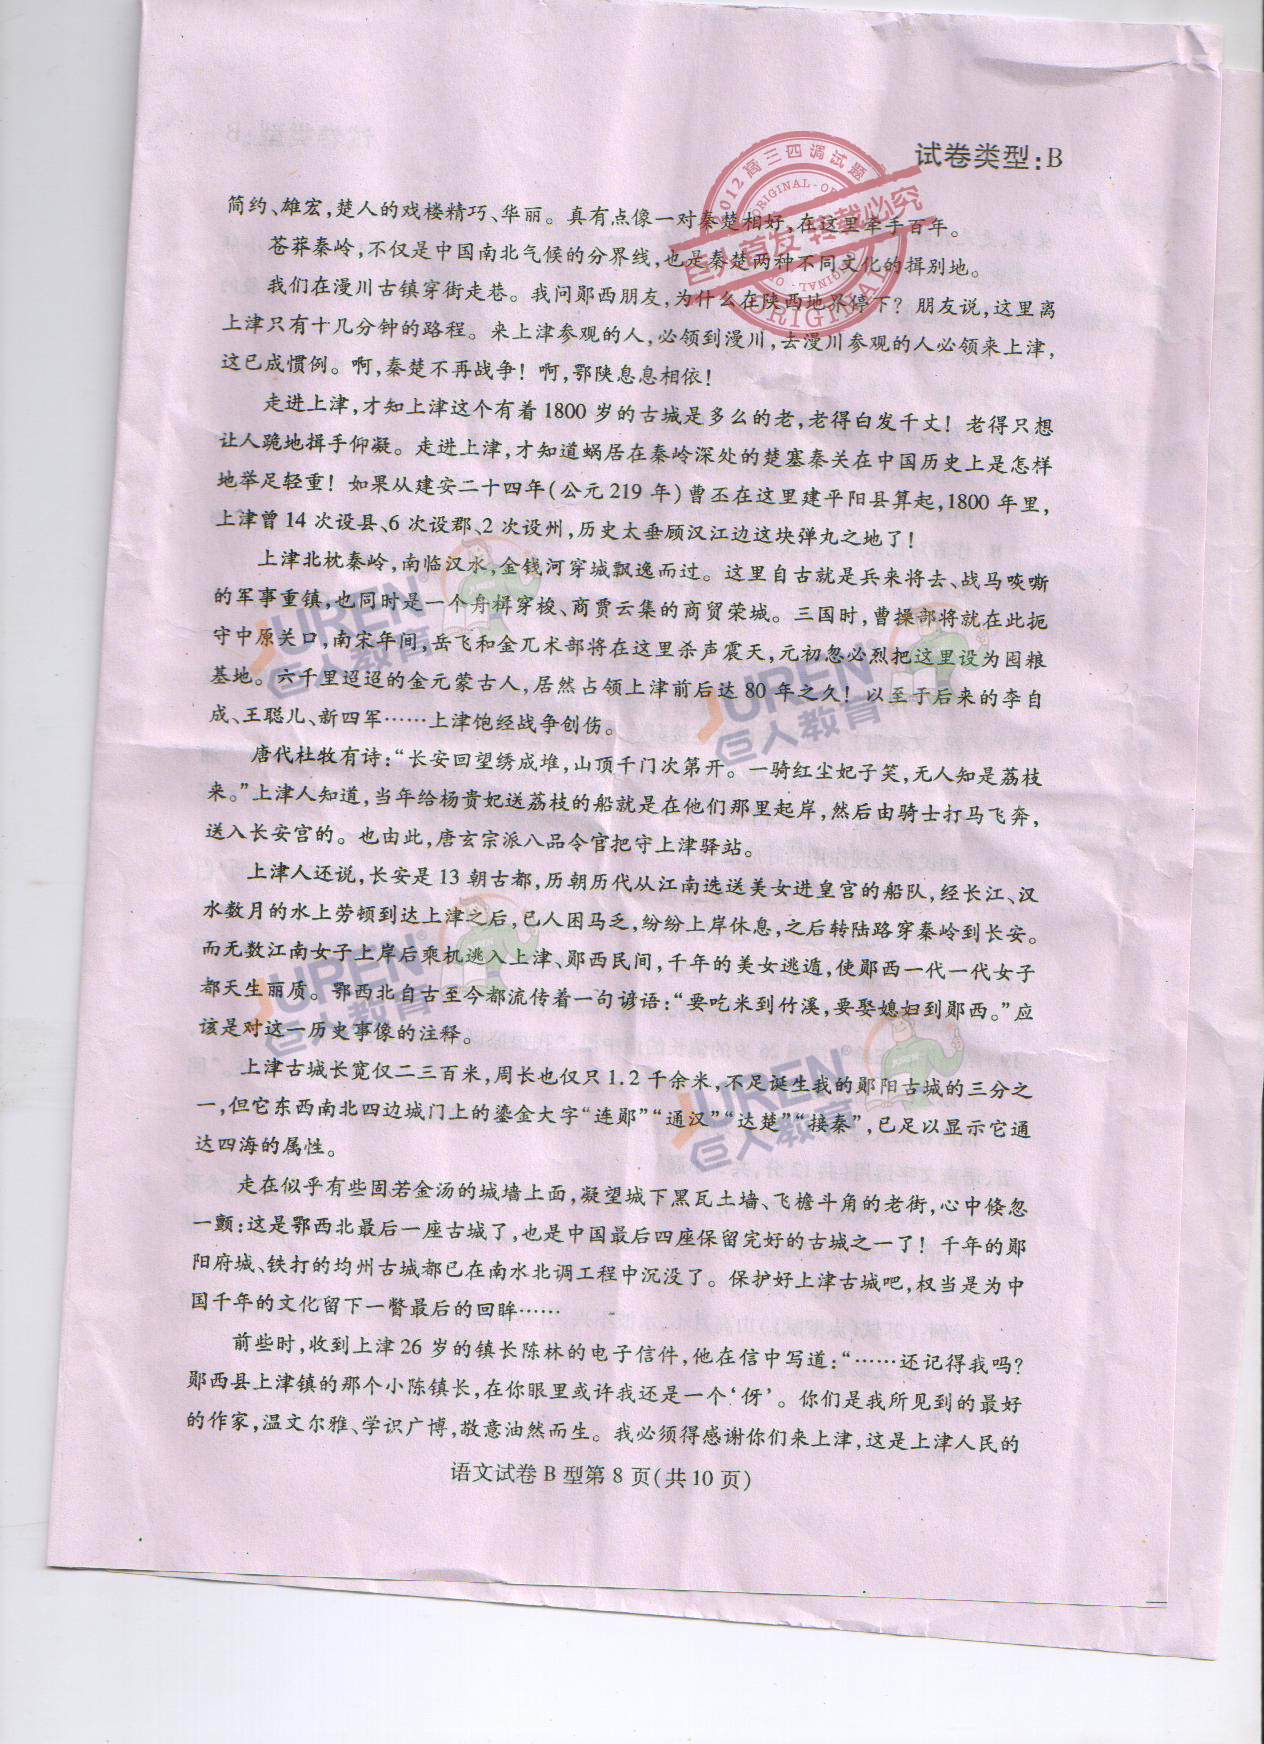 试卷类型:B
2012高三四调试题
ORIGINAL
巨人首发 转载必究
ORIGINAL
简约、雄宏,楚人的戏楼精巧、华丽。真有点像一对秦楚相好,在这里牵手百年。
苍莽秦岭,不仅是中国南北气候的分界线,也是秦楚两种不同文化的揖别地。
我们在漫川古镇穿街走巷。我问郧西朋友,为什么在陕西地界停下?朋友说,这里离
上津只有十几分钟的路程。来上津参观的人,必领到漫川,去漫川参观的人必领来上津,
这已成惯例。啊,秦楚不再战争!啊,鄂陕息息相依!
走进上津,才知上津这个有着1800岁的古城是多么的老,老得白发千丈!老得只想
让人跪地揖手仰凝。走进上津,才知道蜗居在秦岭深处的楚塞秦关在中国历史上是怎样
地举足轻重!如果从建安二十四年(公元219年)曹丕在这里建平阳县算起,1800年里,
上津曾14次设县、6次设郡、2次设州,历史太垂顾汉江边这块弹丸之地了!
上津北枕秦岭,南临汉水,金钱河穿城飘逸而过。这里自古就是兵来将去、战马咴嘶
的军事重镇,也同时是一个舟楫穿梭、商贾云集的商贸荣城。三国时,曹操部将就在此扼
守中原关口,南宋年间,岳飞和金兀术部将在这里杀声震天,元初忽必烈把这里设为囤粮
基地。六千里迢迢的金元蒙古人,居然占领上津前后达80年之久!以至于后来的李自
成、王聪儿、新四军……上津饱经战争创伤。
唐代杜牧有诗:“长安回望绣成堆,山顶千门次第开。一骑红尘妃子笑,无人知是荔枝
来。”上津人知道,当年给杨贵妃送荔枝的船就是在他们那里起岸,然后由骑士打马飞奔,
送入长安宫的。也由此,唐玄宗派八品令官把守上津驿站。
上津人还说,长安是13朝古都,历朝历代从江南选送美女进皇宫的船队,经长江、汉
水数月的水上劳顿到达上津之后,已人困马乏,纷纷上岸休息,之后转陆路穿秦岭到长安。
而无数江南女子上岸后乘机逃入上津、郧西民间,千年的美女逃遁,使郧西一代一代女子
都天生丽质。鄂西北自古至今都流传着一句谚语:“要吃米到竹溪,要娶媳妇到郧西。”应
该是对这一历史事像的注释。
上津古城长宽仅二三百米,周长也仅只1.2千余米,不足诞生我的郧阳古城的三分之
一,但它东西南北四边城门上的鎏金大字“连郧”“通汉”“达楚”“接秦”,已足以显示它通
达四海的属性。
走在似乎有些固若金汤的城墙上面,凝望城下黑瓦土墙、飞檐斗角的老街,心中倏忽
一颤:这是鄂西北最后一座古城了,也是中国最后四座保留完好的古城之一了!千年的郧
阳府城、铁打的均州古城都已在南水北调工程中沉没了。保护好上津古城吧,权当是为中
国千年的文化留下一瞥最后的回眸……
前些时,收到上津26岁的镇长陈林的电子信件,他在信中写道:“……还记得我吗?
郧西县上津镇的那个小陈镇长,在你眼里或许我还是一个‘伢’。你们是我所见到的最好
的作家,温文尔雅、学识广博,敬意油然而生。我必须得感谢你们来上津,这是上津人民的
语文试卷B型第8页(共10页)
JUREN
巨人教育
JUREN
巨人教育
JUREN
巨人教育
JUREN
巨人教育